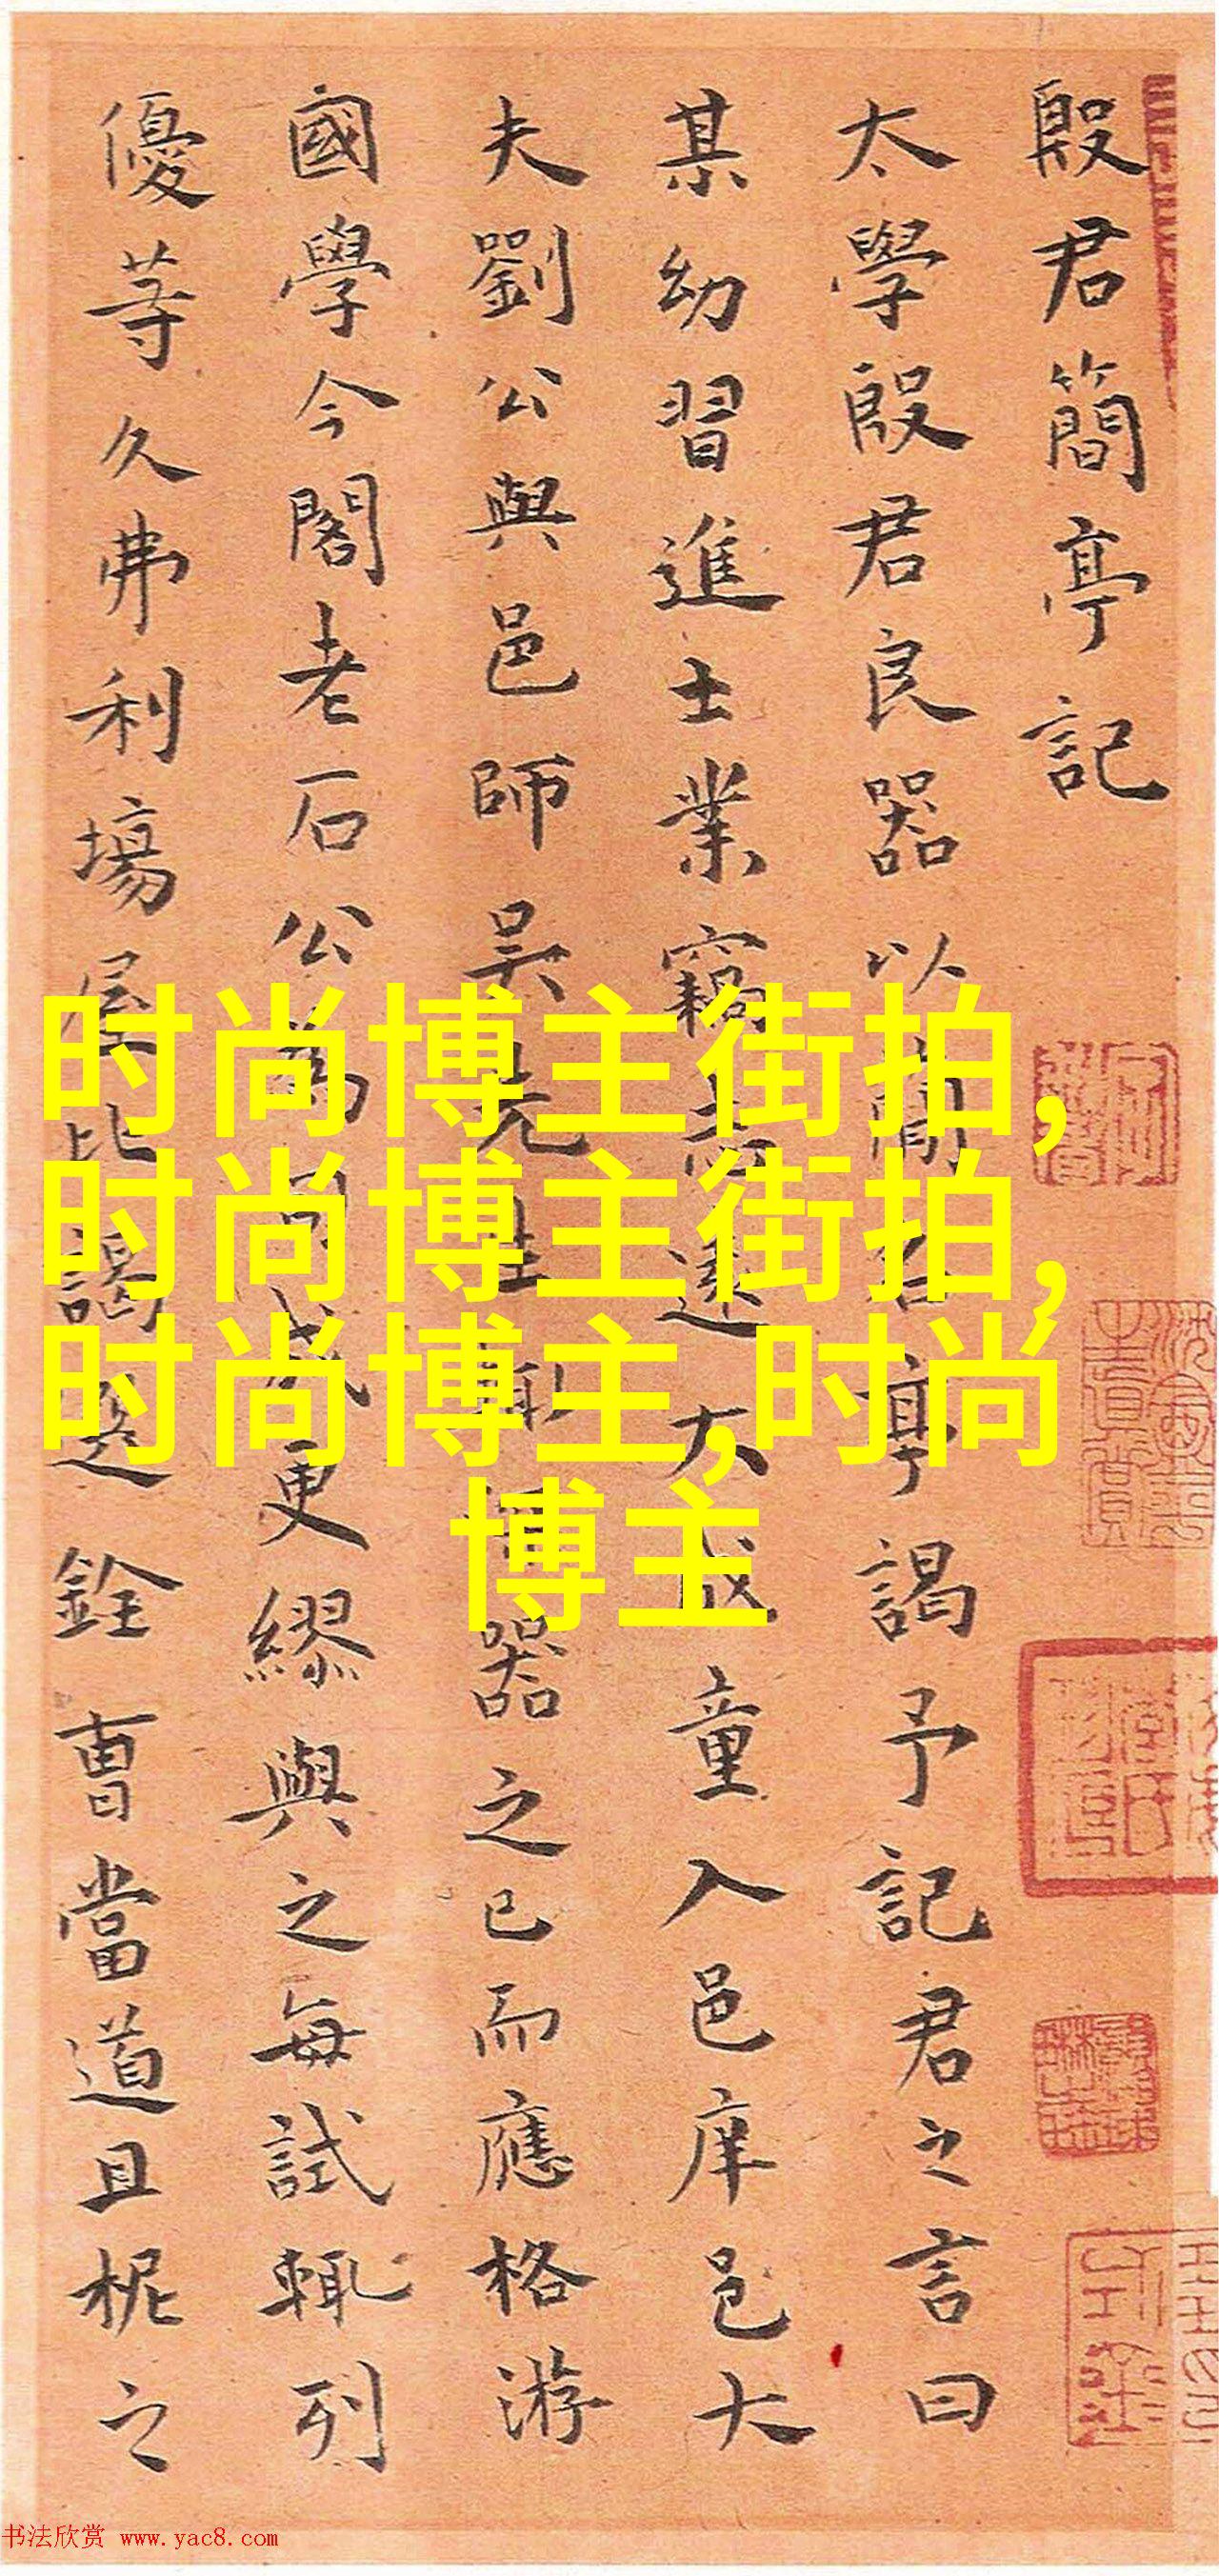 殷君簡亭記
太學殷君良器以簡名亭謁予記君之言曰
某幼習進士業竊志遠大成童入邑庠邑大
夫劉公與邑師吳先生輒器之已而應格游
國學今閣老石公為司成更繆與之每試輒列
優等久弗利場屋比謁選銓曹當道且柅之
时尚博主街拍,
时尚博主街拍,
时尚博主,时尚
博主
书法欣赏 www.yac8.com